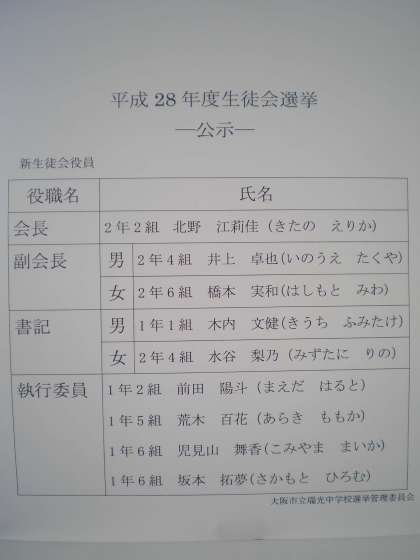 平成28年度生徒会選挙
―公示―
新生徒会役員
役職名 氏名
会長 2年2組 北野 江莉佳(きたの えりか)
副会長 男 2年4組 井上 卓也(いのうえ たくや)
女 2年6組 橋本 実和(はしもと みわ)
書記 男 1年1組 木内 文健(きうち ふみたけ)
女 2年4組 水谷 梨乃(みずたに りの)
執行委員 1年2組 前田 陽斗(まえだ はると)
1年5組 荒木 百花(あらき ももか)
1年6組 児見山 舞香(こみやま まいか)
1年6組 坂本 拓夢(さかもと ひろむ)
大阪市立瑞光中学校選挙管理委員会